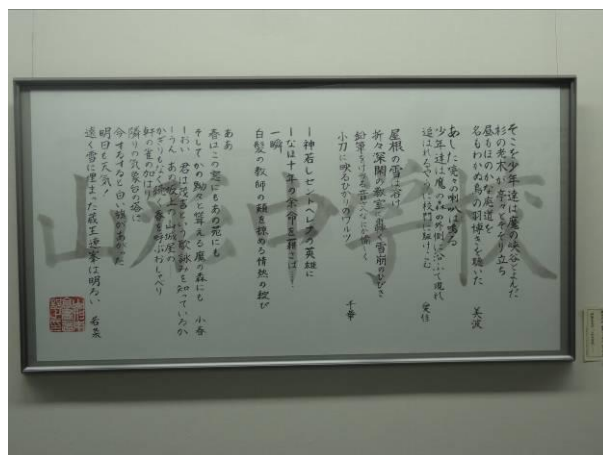 そこを少年達は魔の峡谷とよんだ
杉の老木が亭々とそそり立ち
昼もほのかな底道を
名もわかぬ鳥の羽搏きを聴いた 美波
あした喨々の喇叭は鳴る
少年達は魔の森の外側に沿ふて現れ
追はれるやうに校門に駈けこむ
屋根の雪は溶け
折々深閑の教室に轟く雪崩のひびき
鉛筆をけづる音 なにか愉しく
小刀に映るひかりのワルツ 千華
ー神若しセントヘレナの英雄に
ーなほ十年の余命を藉さば―
一瞬
白髪の教師の頬を掠める情熱の綻び
ああ
春はこの窓にもあの苑にも
そしてかの黝々と聳える魔の森にも 小春
ーおい 君は茂吉という歌詠みを知っているか
ーうん あの坂上の山城屋の
かぎりもなく続く春を呼ぶおしゃべり
軒の雀の如け
隣りの気象台の塔に
今するすると白い旗があがった
明日も天気!
遠く雪に埋まった蔵王連峯は明るい 若菜
山形中学校